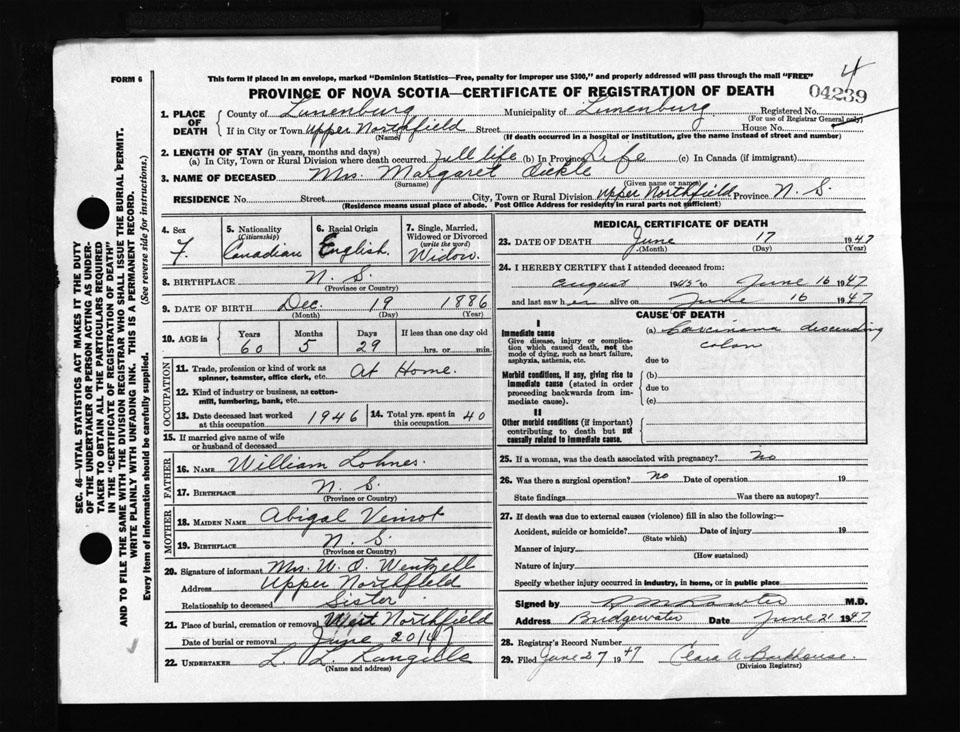 4
FORM 6
This form if placed in an envelope, marked "Dominion Statistics—Free, penalty for improper use $300," and properly addressed will pass through the mail "FREE"
04239
PROVINCE OF NOVA SCOTIA—CERTIFICATE OF REGISTRATION OF DEATH
1. PLACE OF DEATH
County of Lunenburg Municipality of Lunenburg Registered No.
(For use of Registrar General only)
If in City or Town Upper Northfield Street House No.
(Name) (If death occurred in a hospital or institution, give the name instead of street and number)
2. LENGTH OF STAY (in years, months and days)
(a) In City, Town or Rural Division where death occurred full life (b) In Province Life (c) In Canada (if immigrant)
3. NAME OF DECEASED Mrs. Margaret Oickle
(Surname) (Given name or names)
RESIDENCE No. Street City, Town or Rural Division Upper Northfield Province N. S.
(Residence means usual place of abode. Post Office Address for residents in rural parts not sufficient)
4. Sex
F.
5. Nationality
(Citizenship)
Canadian
6. Racial Origin
English.
7. Single, Married, Widowed or Divorced
(write the word)
Widow.
8. BIRTHPLACE N. S.
(Province or Country)
9. DATE OF BIRTH Dec. 19 1886
(Month) (Day) (Year)
10. AGE in Years Months Days If less than one day old
60 5 29 hrs. or min.
OCCUPATION
11. Trade, profession or kind of work as spinner, teamster, office clerk, etc. At Home.
12. Kind of industry or business, as cotton-mill, lumbering, bank, etc.
13. Date deceased last worked at this occupation 1946
14. Total yrs. spent in this occupation 40
15. If married give name of wife or husband of deceased
FATHER
16. NAME William Lohnes.
17. BIRTHPLACE N. S.
(Province or Country)
MOTHER
18. MAIDEN NAME Abigal Veinot
19. BIRTHPLACE N. S.
(Province or Country)
20. Signature of informant Mrs. W. O. Wentzell
Address Upper Northfield
Relationship to deceased Sister.
21. Place of burial, cremation or removal West Northfield
Date of burial or removal June 20/47
22. UNDERTAKER L. L. Langille
(Name and address)
MEDICAL CERTIFICATE OF DEATH
23. DATE OF DEATH June 17 1947
(Month) (Day) (Year)
24. I HEREBY CERTIFY that I attended deceased from:
August 1945 to June 16 1947
and last saw her alive on June 16 1947
CAUSE OF DEATH
I
Immediate cause
Give disease, injury or complication which caused death, not the mode of dying, such as heart failure, asphyxia, asthenia, etc.
(a) Carcinoma descending
colon
due to
Morbid conditions, if any, giving rise to immediate cause (stated in order proceeding backwards from immediate cause).
(b)
due to
(c)
II
Other morbid conditions (if important) contributing to death but not causally related to immediate cause.
25. If a woman, was the death associated with pregnancy? No
26. Was there a surgical operation? No Date of operation 19
State findings Was there an autopsy?
27. If death was due to external causes (violence) fill in also the following:—
Accident, suicide or homicide? Date of injury 19
(State which)
Manner of injury
(How sustained)
Nature of injury
Specify whether injury occurred in industry, in home, or in public place
Signed by M.D.
Address Bridgewater Date June 21 1947
28. Registrar's Record Number
29. Filed June 27 1947 Clara A. Barkhouse.
(Division Registrar)
SEC. 46—VITAL STATISTICS ACT MAKES IT THE DUTY
OF THE UNDERTAKER OR PERSON ACTING AS UNDERTAKER TO OBTAIN ALL THE PARTICULARS REQUIRED
IN THE "CERTIFICATE OF REGISTRATION OF DEATH"
AND TO FILE THE SAME WITH THE DIVISION REGISTRAR WHO SHALL ISSUE THE BURIAL PERMIT.
WRITE PLAINLY WITH UNFADING INK. THIS IS A PERMANENT RECORD.
Every item of information should be carefully supplied. (See reverse side for instructions.)